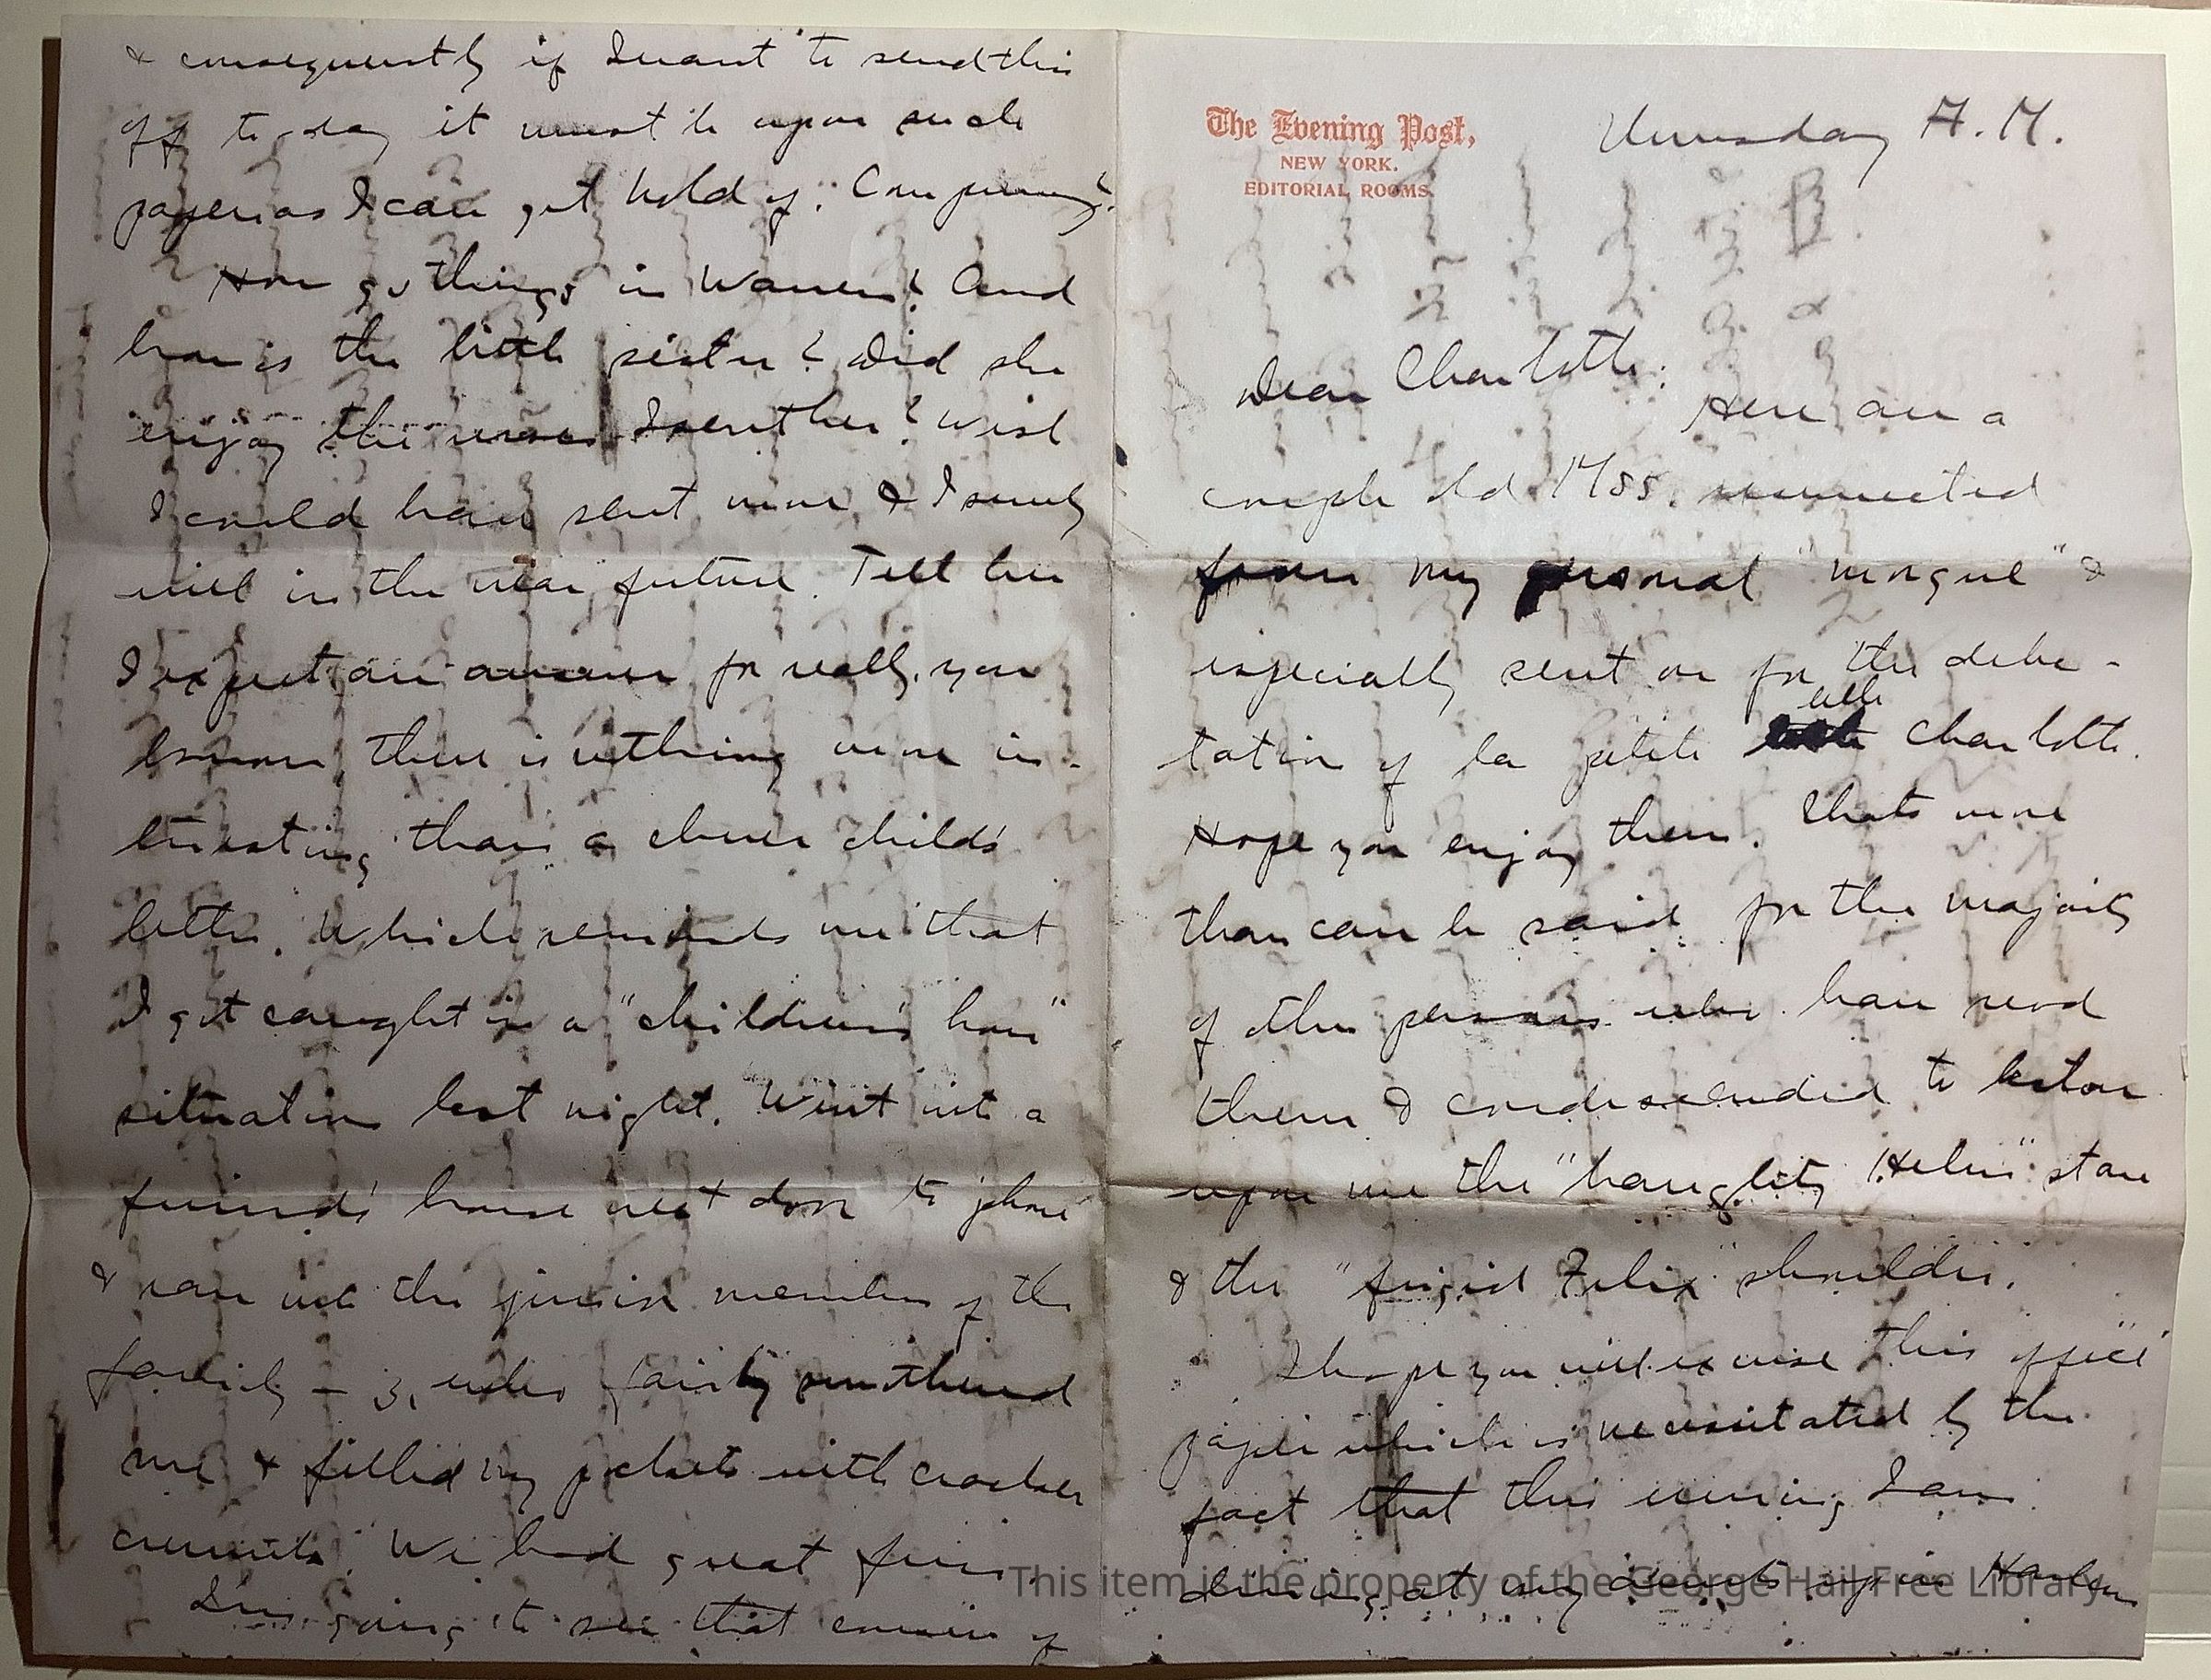 The Evening Post,
NEW YORK.
EDITORIAL ROOMS.
Thursday A.M.
Dear Charlotte:
Here are a
couple old MSS. resurrected
from my personal "morgue" &
especially sent on for the delec-
tation of la petite belle Charlotte.
Hope you enjoy them. Thats more
than can be said for the majority
of other persons who have read
them & condescended to bestow
upon me the "haughty Helen" stare
& the "frigid Felix" shoulder.
I hope you will excuse this office
paper which is necessitated by the
fact that this evening I am
dining at my up in Harlem
& consequently if I want to send this
off to-day it must be upon such
paper as I can get hold of. Comprenny?
How go things in Warren? And
how is the little sister? Did she
enjoy the verses I sent her? Wish
I could have sent more & I surely
will in the near future. Tell her
I expect an answer for really, you
know, there is nothing more in-
teresting than a clever child's
letter. Which reminds me that
I got caught in a "children's hour"
situation last night. Went into a
friend's house next door to 'phone
& ran into the junior members of the
family – 3, who fairly smothered
me & filled my pockets with cracker
crumbs. We had great fun.
I'm going to see that cousin of
This item is the property of the George Hail Free Library